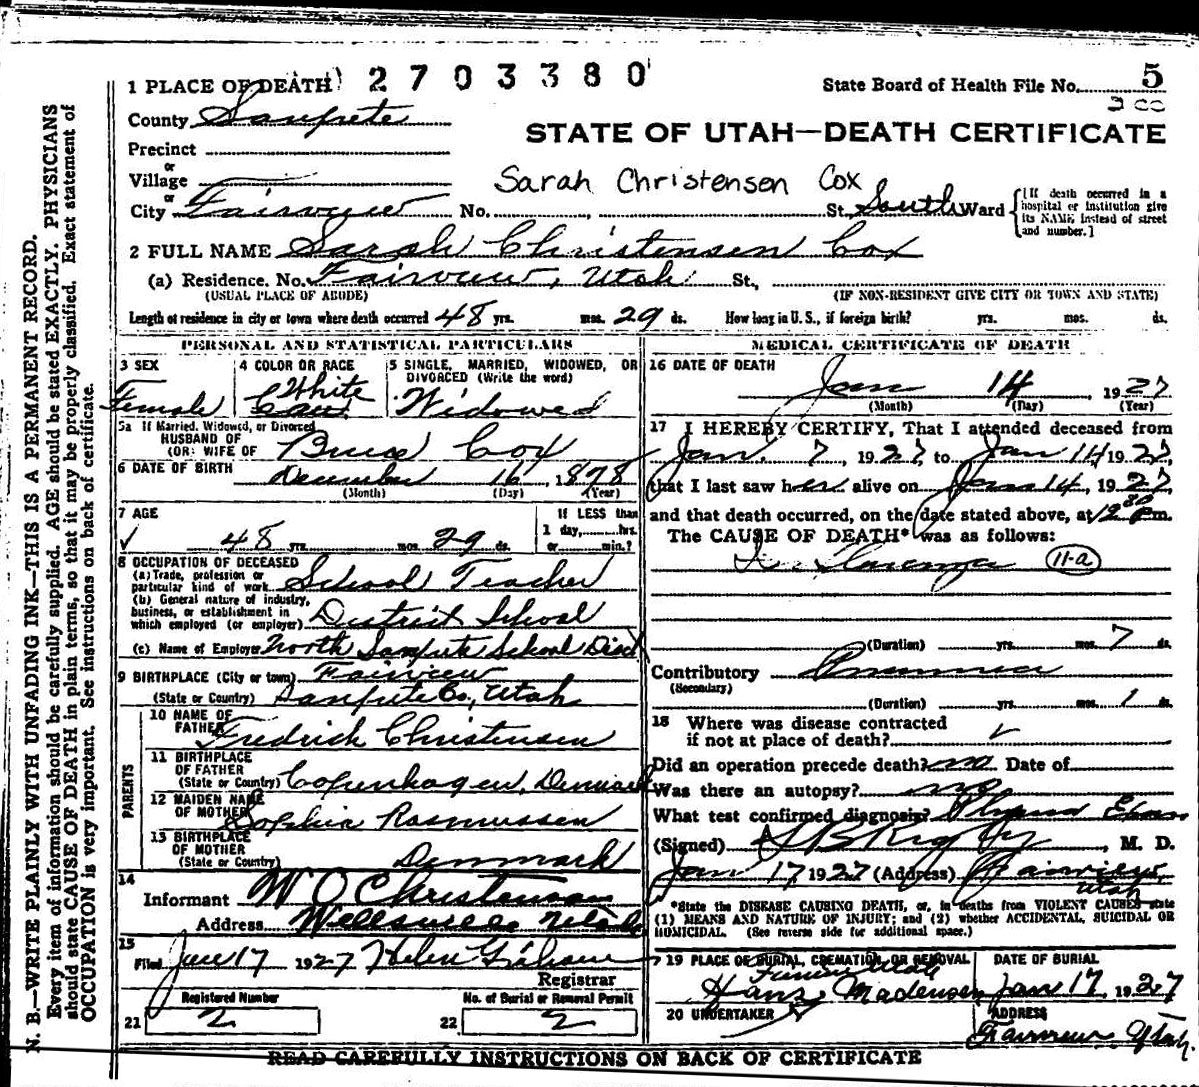 1 PLACE OF DEATH
2703380
State Board of Health File No. 5
County Sanpete
3 cc
STATE OF UTAH—DEATH CERTIFICATE
Precinct
or
Village
Sarah Christensen Cox
or
City Fairview No. , St. South Ward
[If death occurred in a hospital or institution give its NAME instead of street and number.]
2 FULL NAME Sarah Christensen Cox
(a) Residence. No. Fairview, Utah St.,
(USUAL PLACE OF ABODE) (IF NON-RESIDENT GIVE CITY OR TOWN AND STATE)
Length of residence in city or town where death occurred 48 yrs. mos. 29 ds. How long in U. S., if foreign birth? yrs. mos. ds.
PERSONAL AND STATISTICAL PARTICULARS
3 SEX
Female
4 COLOR OR RACE
White
Cau.
5 SINGLE, MARRIED, WIDOWED, OR DIVORCED (Write the word)
Widowed
5a If Married, Widowed, or Divorced
HUSBAND OF
(OR) WIFE OF Bruce Cox
6 DATE OF BIRTH December 16, 1878
(Month) (Day) (Year)
7 AGE
48 yrs. mos. 29 ds.
If LESS than
1 day, hrs.
or min.?
8 OCCUPATION OF DECEASED
(a) Trade, profession or
particular kind of work School Teacher
(b) General nature of industry,
business, or establishment in
which employed (or employer) District School
(c) Name of Employer North Sanpete School Dist
9 BIRTHPLACE (City or town) Fairview
(State or Country) Sanpete Co., Utah
PARENTS
10 NAME OF
FATHER Fredrick Christensen
11 BIRTHPLACE
OF FATHER
(State or Country) Copenhagen, Denmark
12 MAIDEN NAME
OF MOTHER Sophia Rasmussen
13 BIRTHPLACE
OF MOTHER
(State or Country) Denmark
14
Informant W O Christensen
Address Wellsville Utah
15
Filed Jan 17 1927 Helen Graham
Registrar
Registered Number
21 2
No. of Burial or Removal Permit
22 2
MEDICAL CERTIFICATE OF DEATH
16 DATE OF DEATH
Jan 14 1927
(Month) (Day) (Year)
17 I HEREBY CERTIFY, That I attended deceased from
Jan. 7, 1927, to Jan 14, 1927,
that I last saw her alive on Jan 14, 1927
and that death occurred, on the date stated above, at 12 30 P.m.
The CAUSE OF DEATH* was as follows:
11-a
(Duration) yrs. mos. 7 ds.
Contributory Pneumonia
(Secondary)
(Duration) yrs. mos. 1 ds.
18 Where was disease contracted
if not at place of death?
Did an operation precede death? no Date of
Was there an autopsy? no
What test confirmed diagnosis? Physical Exam
(Signed) S B Rigby, M. D.
Jan 17, 1927 (Address) Fairview,
Utah
*State the DISEASE CAUSING DEATH, or, in deaths from VIOLENT CAUSES state
(1) MEANS AND NATURE OF INJURY; and (2) whether ACCIDENTAL, SUICIDAL OR
HOMICIDAL. (See reverse side for additional space.)
19 PLACE OF BURIAL, CREMATION, OR REMOVAL
Fairview Utah
DATE OF BURIAL
Jan 17, 1927
Hans Madensen
20 UNDERTAKER
ADDRESS
Fairview Utah.
READ CAREFULLY INSTRUCTIONS ON BACK OF CERTIFICATE
N. B.—WRITE PLAINLY WITH UNFADING INK—THIS IS A PERMANENT RECORD.
Every item of information should be carefully supplied. AGE should be stated EXACTLY. PHYSICIANS
should state CAUSE OF DEATH in plain terms, so that it may be properly classified. Exact statement of
OCCUPATION is very important. See instructions on back of certificate.